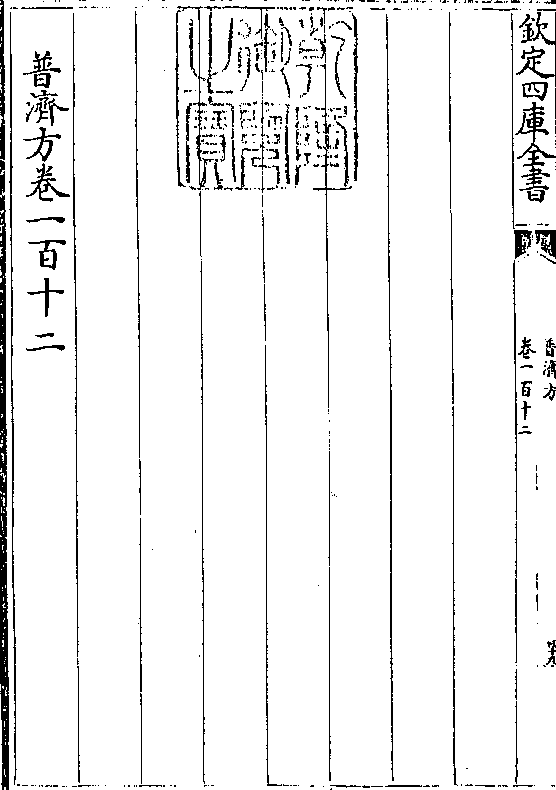 欽定四庫全書
普濟方
卷一百十二
乾隆御覽之寶
普濟方卷一百十二